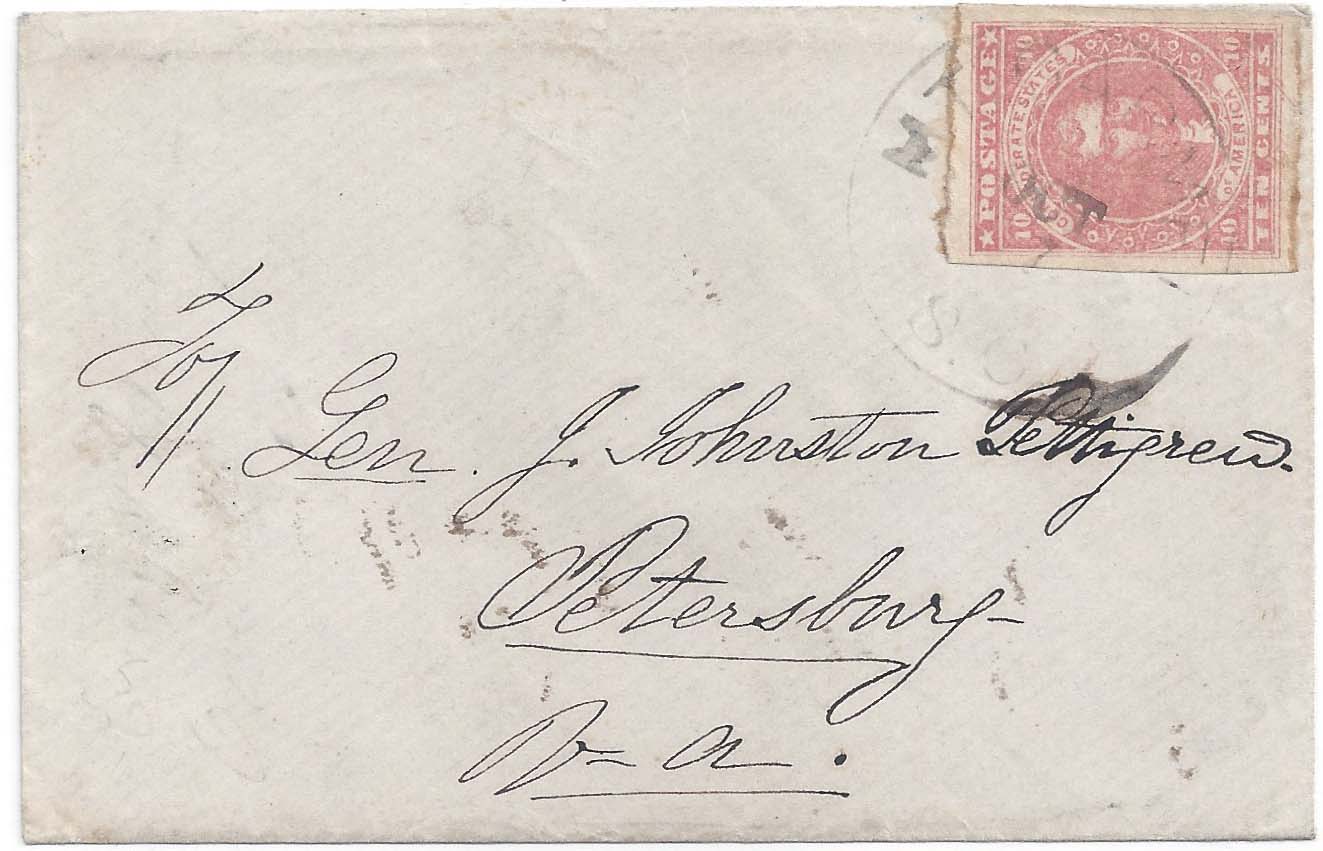 POSTAGE
10 10
CONFEDERATE STATES
OF AMERICA
10 10
TEN CENTS
S.C
To//
Gen. J. Johnston Pettigrew.
Petersburg
Va.